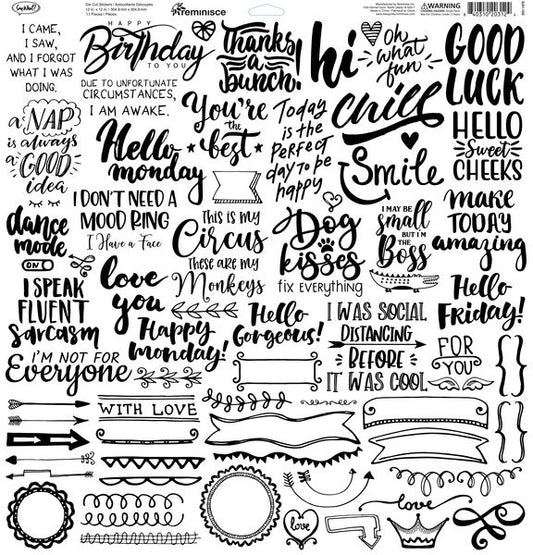 Reminisce
Die Cut Stickers
WARNING
I CAME,
I SAW,
AND I FORGOT
WHAT I WAS
DOING.
HAPPY
Birthday
TO YOU
DUE TO UNFORTUNATE
CIRCUMSTANCES,
I AM AWAKE.
Thanks
a
bunch!
hi
oh
what
fun
GOOD
LUCK
a
NAP
is always
a
GOOD
idea
Hello
monday
You're
the
best
Today
is the
PERFECT
day to be
happy
chill
Smile
HELLO
Sweet
CHEEKS
dance
mode
ON
I DON'T NEED A
MOOD RING
I Have a Face
This is my
Circus
These are my
Monkeys
Dog
kisses
fix EVERYTHING
I MAY BE
small
BUT I'M
THE
BOSS
make
TODAY
amazing
I SPEAK
FLUENT
sarcasm
love
you
Happy
monday!
Hello
Gorgeous!
I WAS SOCIAL
DISTANCING
BEFORE
IT WAS COOL
Hello
Friday!
FOR
YOU
I'M NOT FOR
Everyone
WITH LOVE
love
love